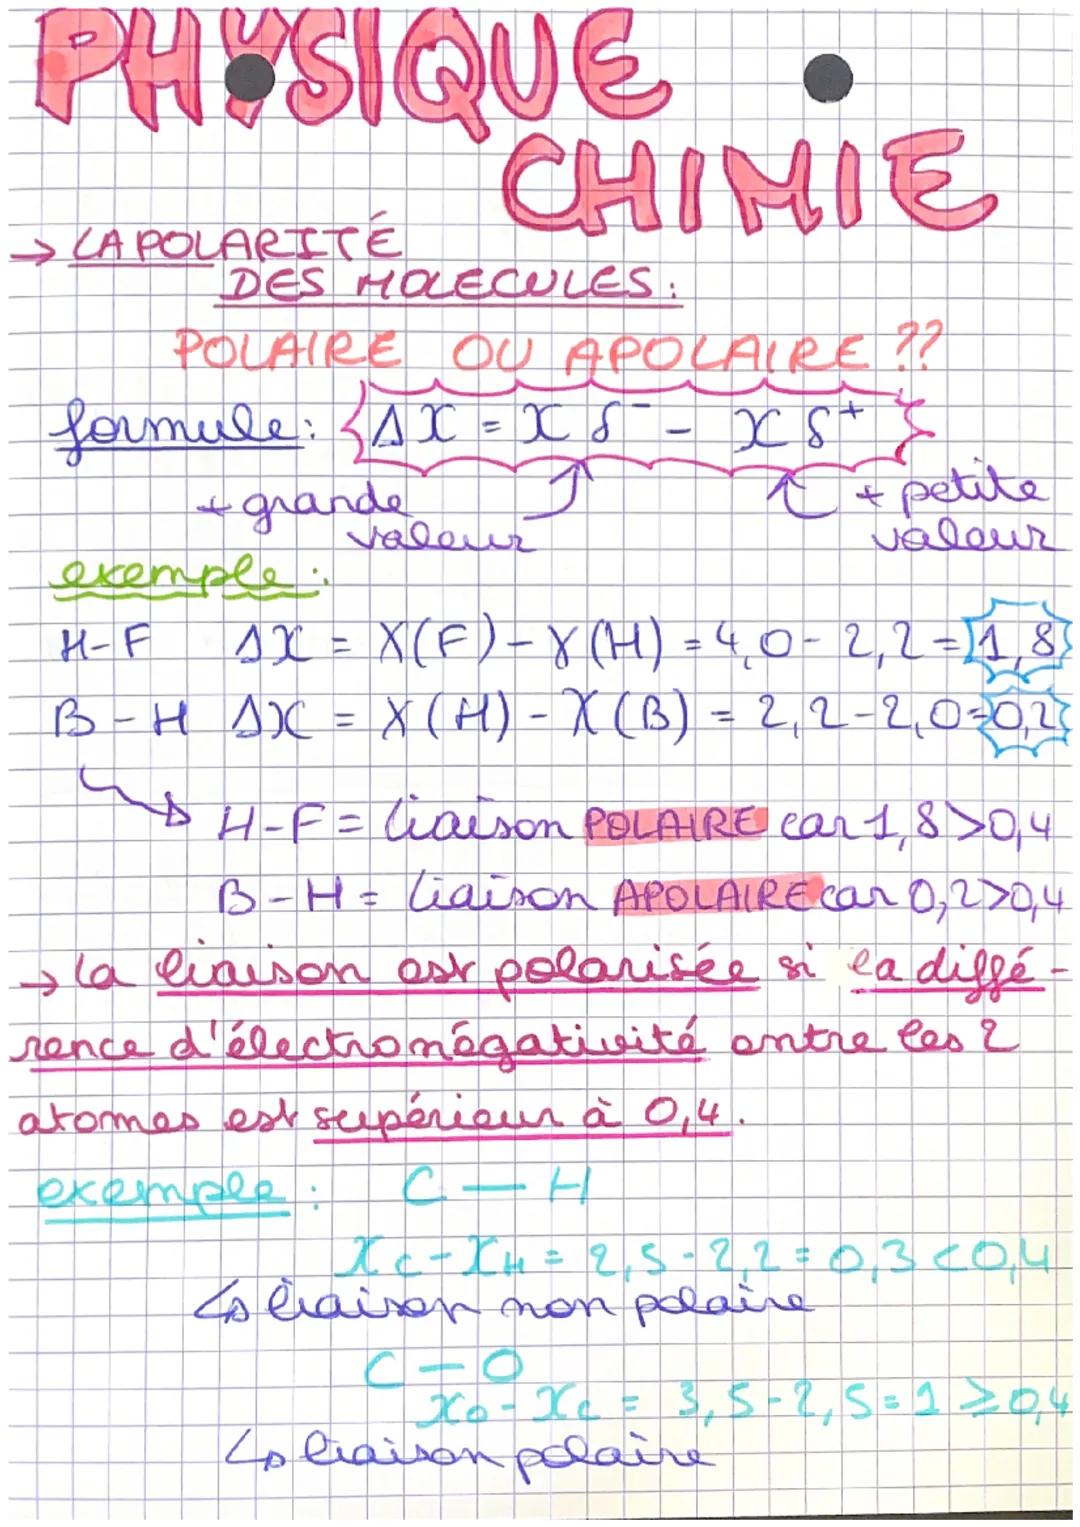 PHYSIQUE
CHIMIE
→ LA POLARITÉ
DES MOLECULES :
POLAIRE OU APOLAIRE ??
formule : {ΔX = X δ⁻ - X δ⁺}
+ grande
valeur
+ petite
valeur
exemple :
H-F ΔX = X(F) - X(H) = 4,0 - 2,2 = 1,8
B-H ΔX = X(H) - X(B) = 2,2 - 2,0 = 0,2
H-F = liaison POLAIRE car 1,8 > 0,4
B-H = liaison APOLAIRE car 0,2 > 0,4
→ la liaison est polarisée si la diffé-
rence d'électronégativité entre les 2
atomes est supérieur à 0,4.
exemple : C — H
Xc - XH = 2,5 - 2,2 = 0,3 < 0,4
↳ liaison non polaire
C — O
Xo - Xc = 3,5 - 2,5 = 1 ≥ 0,4
↳ liaison polaire